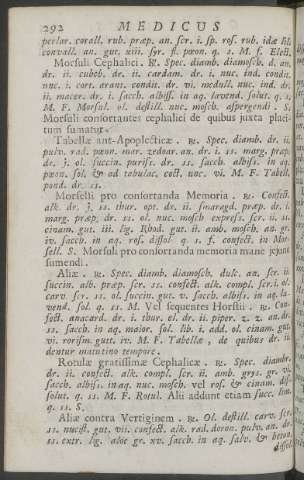 292 MEDICUS
perlar. corall. rub. præp. an. ſcr. i. ſp. roſ. rub. idæ ſil.
convall. an. gut. xiii. ſyr. fl. pæon. q. s. M. f. Elect.
Morſuli Cephalici. ℞. Spec. diamb. diamoſch. d. an.
dr. ii. cubeb. de. ii. cardam. dr. i. nuc. ind. condit.
nuc. i. cort. arant. condit. dr. vi. medull. nuc. ind. dr.
ii. macer. dr. i. ſacch. albiſſ. in aq. lavend. ſolut. q. s.
M. F. Morſul. ol. deſtill. nuc. moſch. aſpergendi. S.
Morſuli confortantes cephalici de quibus juxta placi-
tum ſumatur.
Tabellæ ant-Apoplecticæ. ℞. Spec. diamb. dr. ii.
pulv. rad. pæon. mar. zedoar. an. dr. i. ss. marg. præp.
dr. ʒ. ol. ſuccin. puriſſ. dr. ss. ſacch. albiſſ. in aq.
pæon. ſol. & ad tabulac. coct. unc. vi. M. F. Tabell.
pond. dr. ss.
Morſelli pro confortanda Memoria. ℞. Confect.
alk. dr. ʒ. ss. thur. opt. dr. ii. ſmaragd. præp. dr. i.
marg. præp. dr. ss. ol. nuc. moſch expreſſ. ſcr. ii. ss.
cinam. gut. iii. lig. Rhod. gut. ii. amb. moſch. an. gr.
iv. ſacch. in aq. roſ. diſſol q. s. f. confect. in Mor-
ſell. S. Morſuli pro confortanda memoria mane jejune
ſumendi.
Aliæ. ℞. Spec. diamb. diamoſch. dulc. an. ſcr. ii
ſuccin. alb. præp. ſcr. ss. confect. alk. compl. ſcr. i. ol.
carv ſcr. ss. ol. ſuccin. gut. v. ſacch. albiſſ. in aq. la-
vend. ſol. q. ss. M. Vel ſequentes Horſtii: ℞. Con-
fect. anacard. dr. i. thur. el. dr. ii. piper. q. s. an. dr.
ss. ſacch. in aq. maior. ſol. lib. i. add. ol. cinam. gut.
vi. roriſm. gutt. iv. M. F. Tabellæ, de quibus dr. ii.
dentur matutino tempore.
Rotulæ gratiſſimæ Cephalicæ. ℞. Spec. diambr.
dr. ii. confect. alk. compl. ſcr. ii. amb. gryſ. gr. vi.
ſacch. albiſſ. in aq. nuc. moſch vel roſ. & cinam. diſ-
ſolut. q. ss. M. F. Rotul. Alii addunt etiam ſucc.
q. ss. S.
Aliæ contra Vertiginem. ℞. Ol. deſtill. carv. ſcr.
ss. nuciſt. gut. vii. confect. alk. rad. doron. pulv. an. dr.
ss. extr. lig. aloe gr. xv. ſacch. in aq. ſalv. & beton.
diſſol.